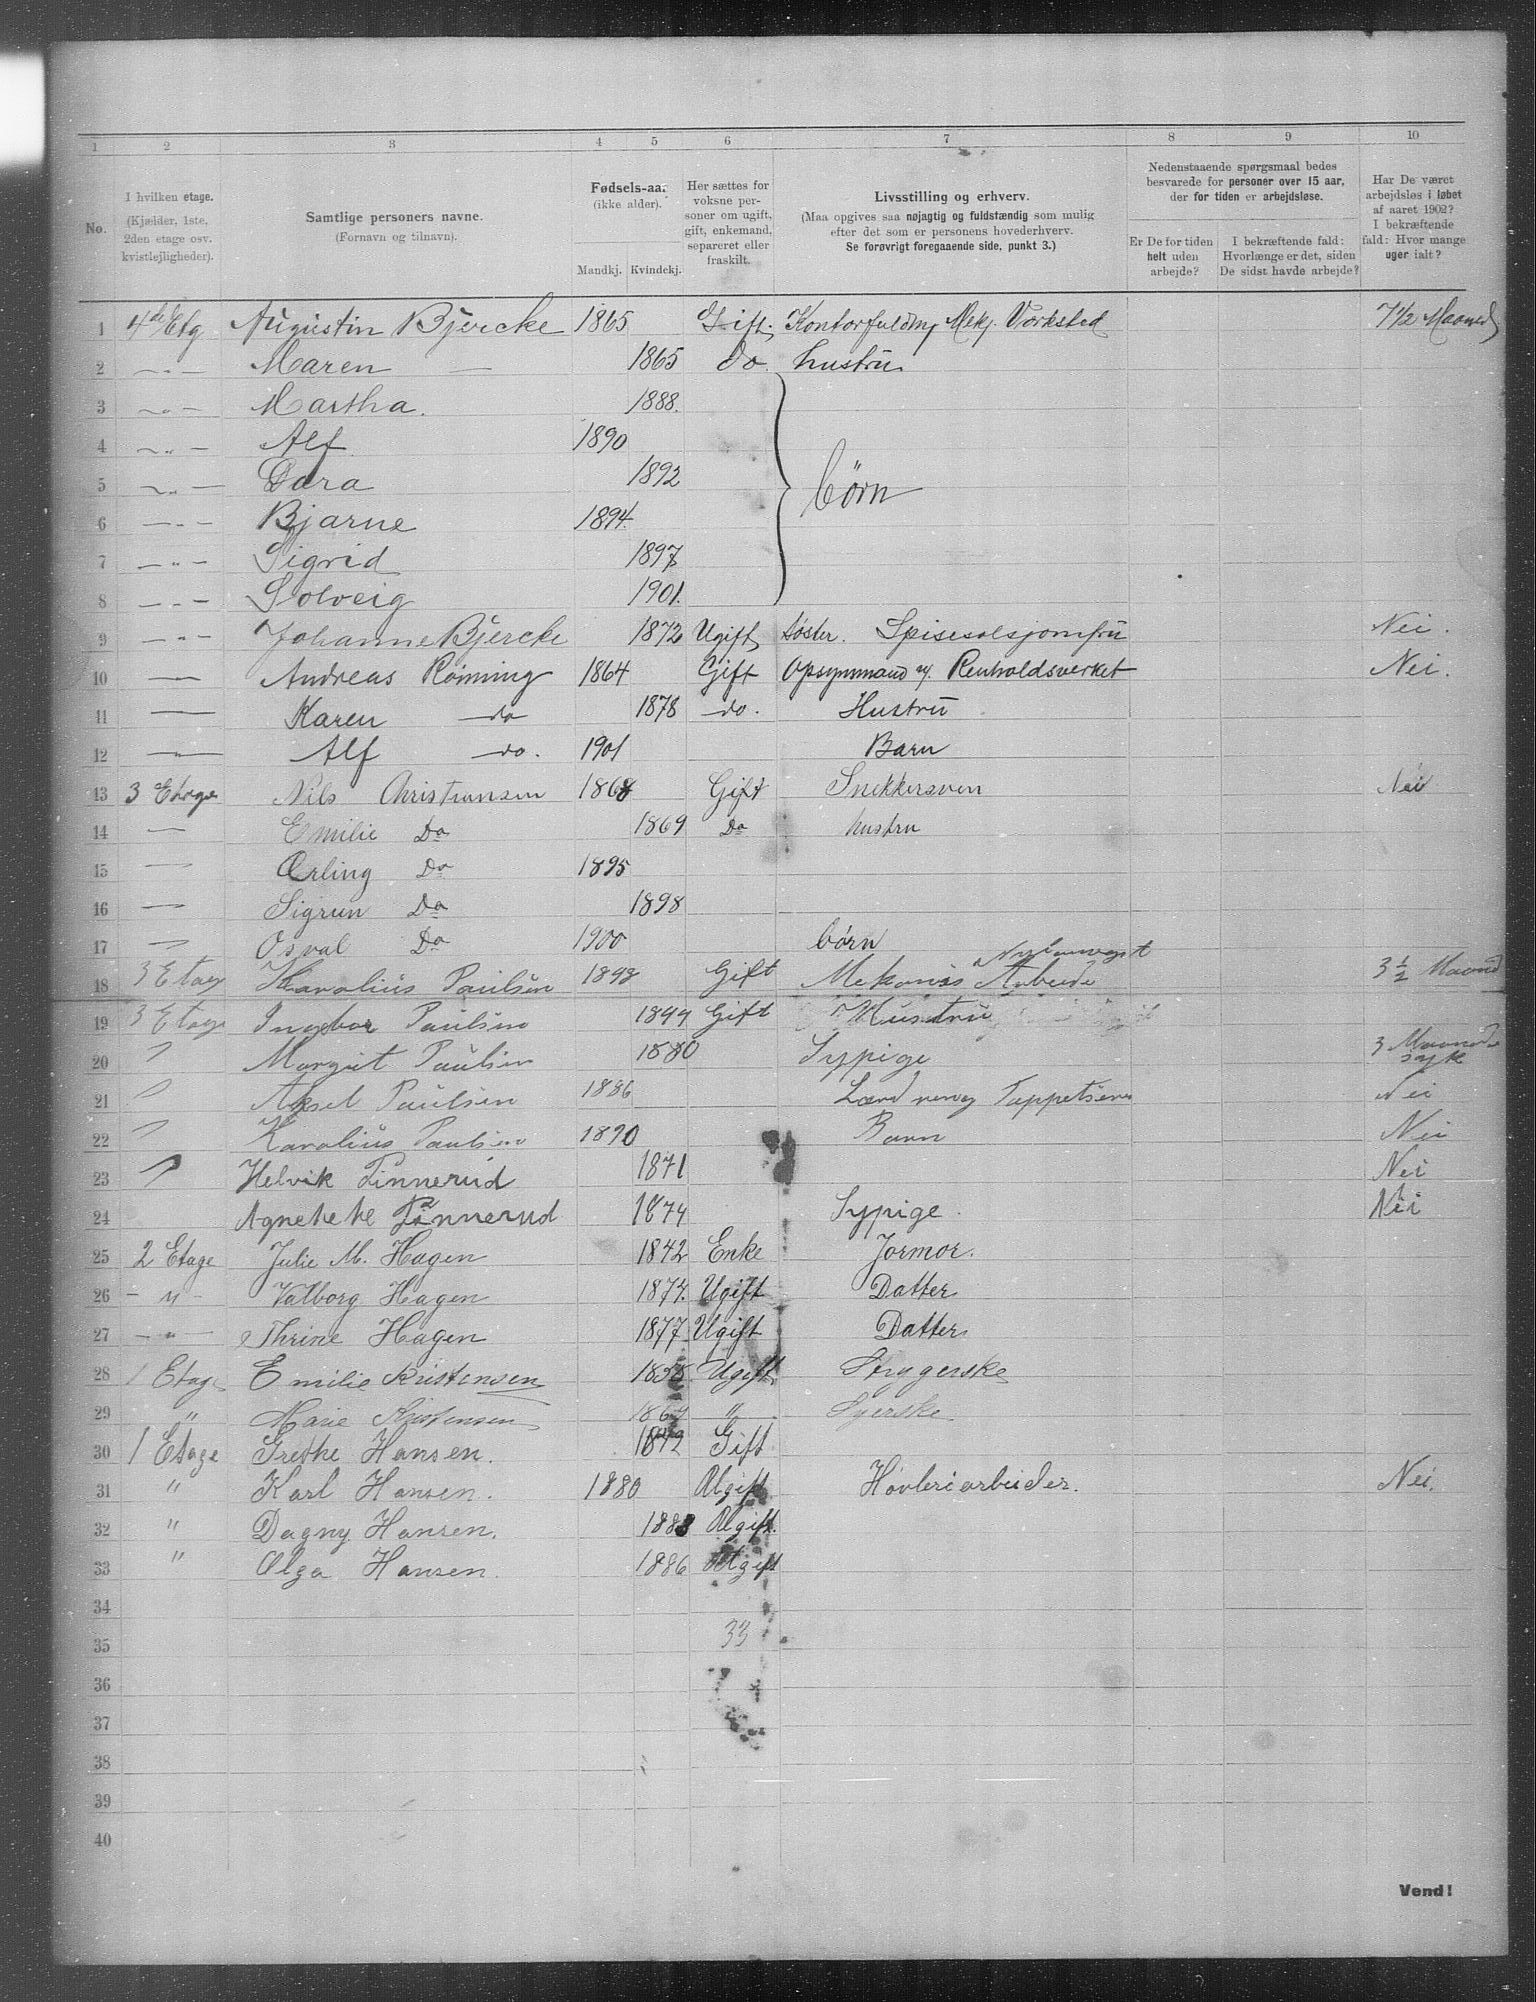 1 2 3 4 5 6 7 8 9 10
No.
I hvilken etage.
(Kjælder, 1ste,
2den etage osv.
kvistlejligheder).
Samtlige personers navne.
(Fornavn og tilnavn).
Fødsels-aar
(ikke alder).
Mandkj. Kvindekj.
Her sættes for
voksne per-
soner om ugift,
gift, enkemand,
separeret eller
fraskilt.
Livsstilling og erhverv.
(Maa opgives saa nøjagtig og fuldstændig som mulig
efter det som er personens hovederhverv.
Se forøvrigt foregaaende side, punkt 3.)
Nedenstaaende spørgsmaal bedes
besvarede for personer over 15 aar,
der for tiden er arbejdsløse.
Er De for tiden
helt uden
arbejde?
I bekræftende fald:
Hvorlænge er det, siden
De sidst havde arbejde?
Har De været
arbejdsløs i løbet
af aaret 1902?
I bekræftende
fald: Hvor mange
uger ialt?
1 4de Etg Augustin Bjercke 1865 Gift Mekj. Værksted 7 1/2 Maaned
2 —"— Maren — 1865 do. hustru
3 —"— Martha. 1888.
4 —"— Alf 1890
5 —"— Dora 1892 børn
6 —"— Bjarne 1894.
7 —"— Sigrid 1897
8 —"— Solveig 1901.
9 —"— Johanne Bjercke 1872 Ugift søster. Spisesalsjomfru Nei.
10 —"— Andreas Rønning 1864 Gift Opsynmand v. Renholdsverket Nei.
11 — Karen do 1878 do. Hustru
12 —"— Alf do. 1901 Barn
13 3 Etage Nils Christiansen 1868 Gift Snekkersven Nei
14 — Emilie Do 1869 Do hustru
15 — Erling Do 1895
16 — Sigrun Do 1898
17 — Osval Do 1900 børn
18 3 Etag Karolius Paulsen 1848 Gift Mekanis Arbeide 3 1/2 Maaned
19 3 Etage Ingebor Paulsen 1849 Gift Hustru
20 " Margit Paulsen 1880 Sypige 3 Maaneder syk
21 " Aksel Paulsen 1886 Tappetserer Nei
22 " Karolius Paulsen 1890 Barn Nei
23 " Helvik Tinnerud 1871 Nei
24 Agnethe Tinnerud 1874 Sypige. Nei
25 2 Etage Julie M. Hagen 1842 Enke Jormor.
26 —"— Valborg Hagen 1874. Ugift Datter
27 —"— Thrine Hagen 1877. Ugift Datter
28 1 Etage Emilie Kristensen 1858 Ugift Strygerske
29 " Marie Kristensen " Syerske
30 1 Etage Grethe Hansen. 1842 Gift
31 " Karl Hansen. 1880 Ugift Høvleriarbeider. Nei.
32 " Dagny Hansen. 1883 Ugift.
33 " Olga Hansen. 1886 Ugift
34
35 33
36
37
38
39
40
Vend!